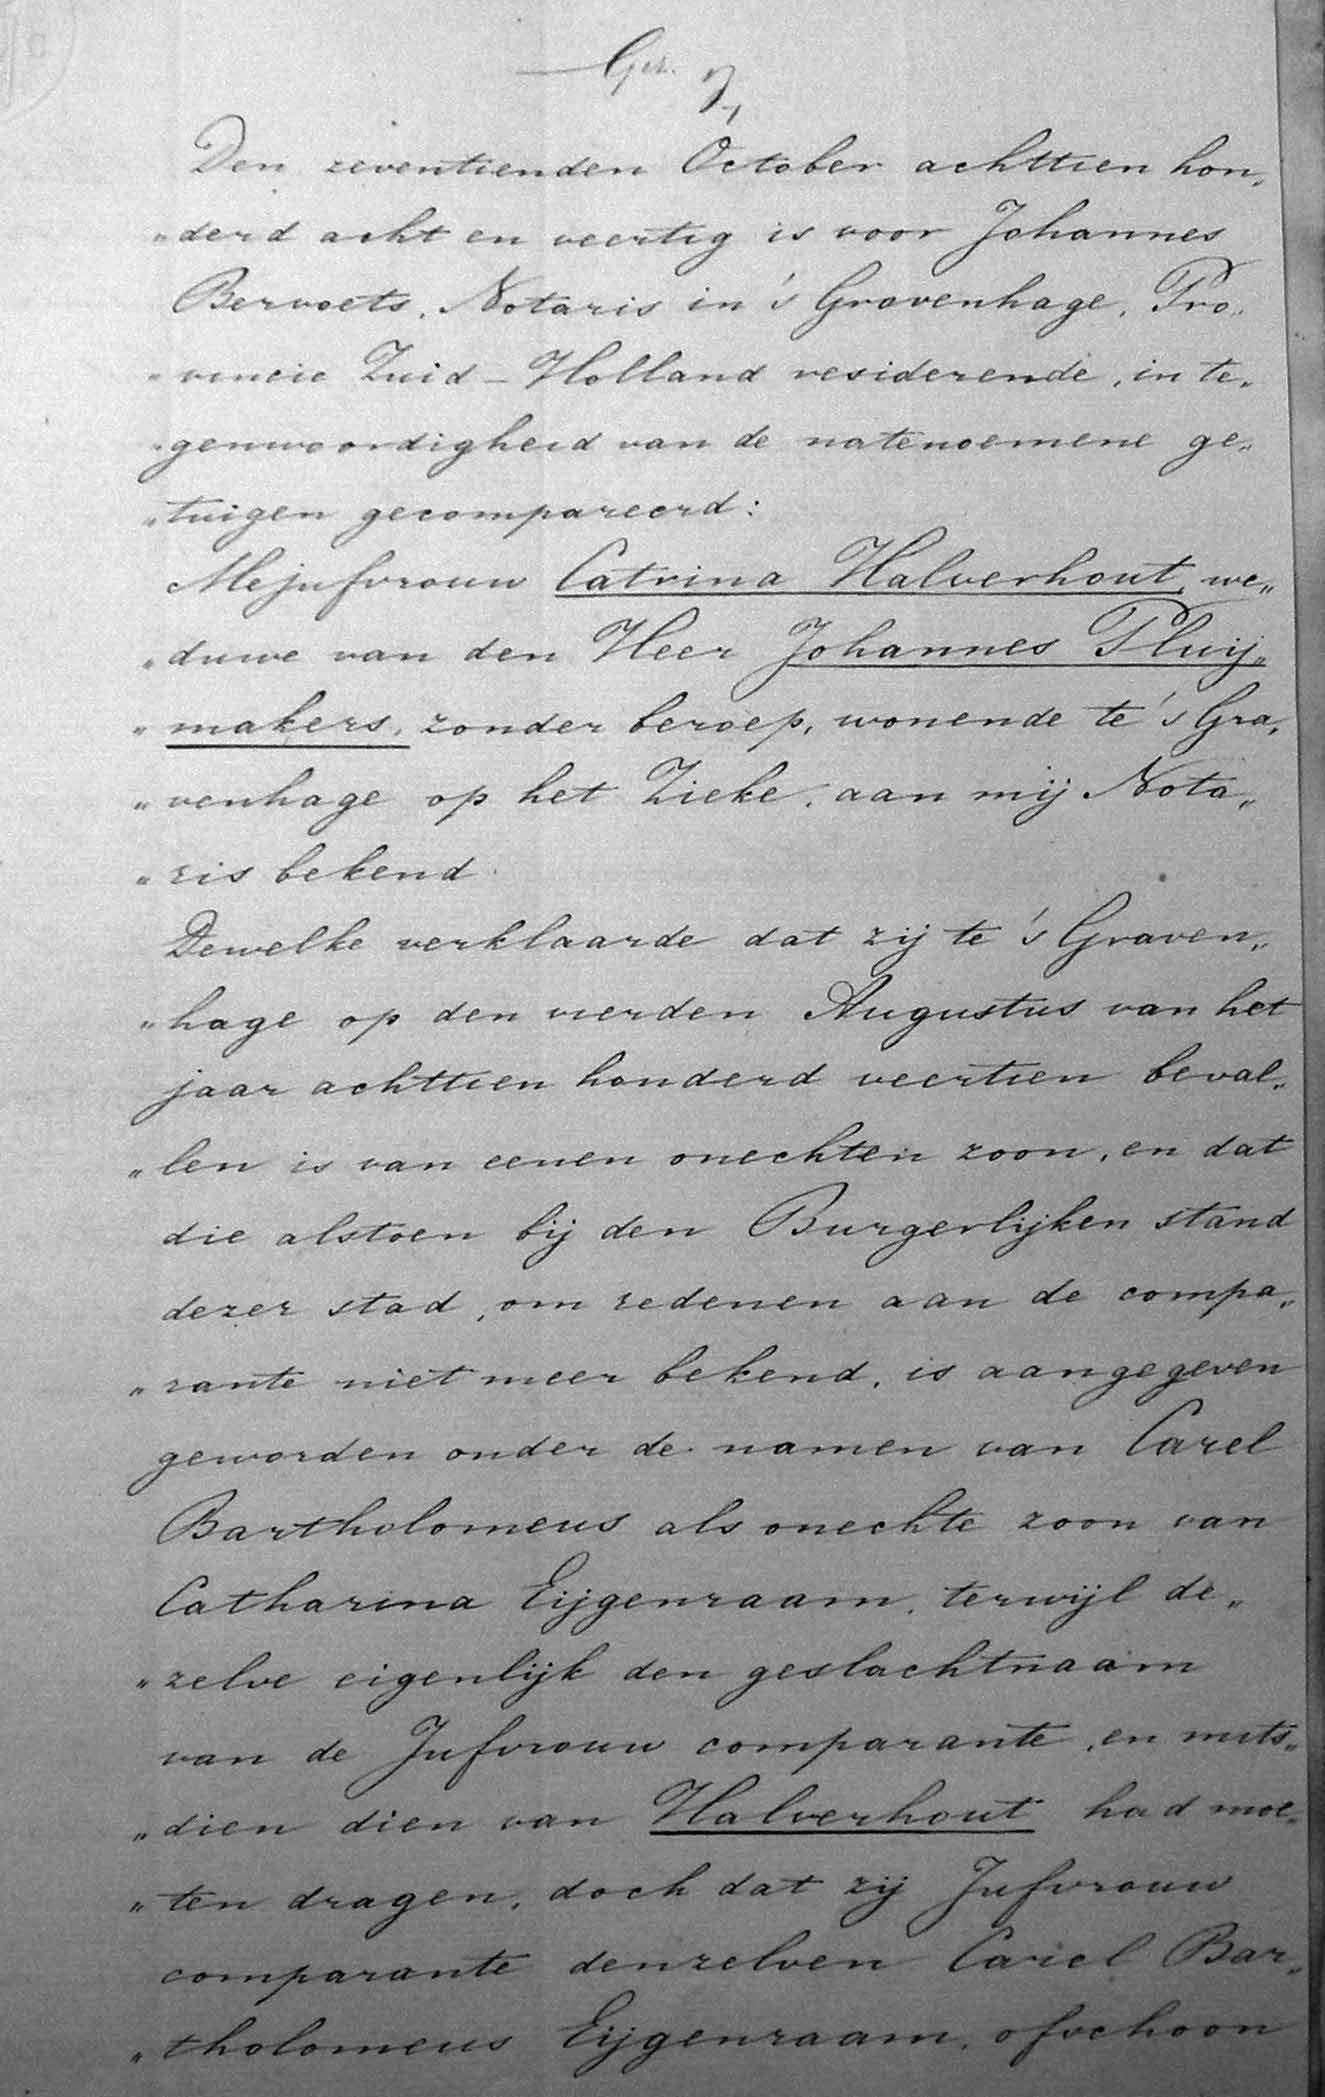 Get. J,
Den zeventienden October achttien hon„
„derd acht en veertig is voor Johannes
Bervoets, Notaris in 's Gravenhage, Pro„
„vincie Zuid-Holland resideerende, in te„
„genwoordigheid van de natenoemene ge„
„tuigen gecompareerd:
Mejufvrouw Catrina Halverhout, we„
„duwe van den Heer Johannes Pluij„
„makers, zonder beroep, wonende te 's Gra„
„venhage op het Zieke, aan mij Nota„
„ris bekend.
Dewelke verklaarde dat zij te 's Graven„
„hage op den vierden Augustus van het
jaar achttien honderd veertien beval„
„len is van eenen onechten zoon, en dat
die alstoen bij den Burgerlijken stand
dezer stad, om redenen aan de compa„
„rante niet meer bekend, is aangegeven
geworden onder de namen van Carel
Bartholomeus als onechte zoon van
Catharina Eijgenraam, terwijl de„
„zelve eigenlijk den geslachtnaam
van de Jufvrouw comparante, en mits„
„dien dien van Halverhout had moe„
„ten dragen, doch dat zij Jufvrouw
comparante denzelven Carel Bar„
„tholomeus Eijgenraam, ofschoon